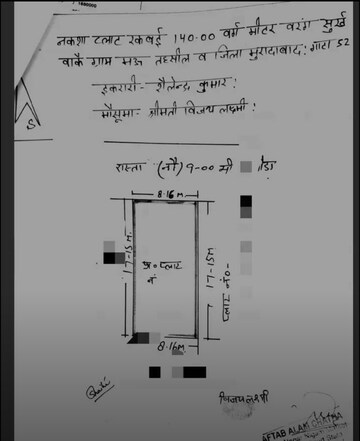 नक्शा प्लाट रकवई 140.00 वर्ग मीटर वरंग सुर्ख
वाकै ग्राम मऊ तहसील व जिला मुरादाबाद: गाटा 52
इकरारी- शैलेन्द्र कुमार:
मौसूमा- श्रीमती विजय लक्ष्मी:
S
रास्ता (नौ) 9-00 मी
8.16 M.
17-15M
प्लाट
नं
17-15M
प्लाट नं०-
8.16M
विजय लक्ष्मी
AFTAB ALAM